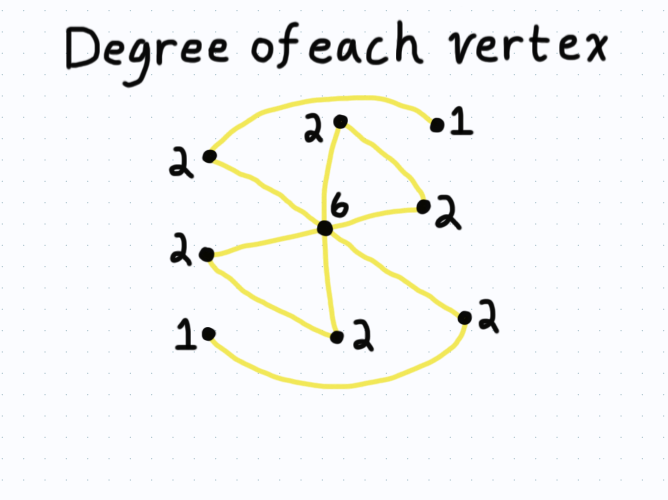 Degree of each vertex
2 1
2
6
2
2
2
1 2